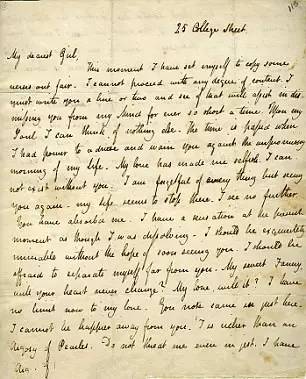 25 College Street
My dearest Girl,
This moment I have set myself to copy some
verses out fair. I cannot proceed with any degree of content. I
must write you a line or two and see if that will assist in dis
missing you from my Mind for ever so short a time. Upon my
Soul I can think of nothing else. The time is passed when
I had power to advise and warn you against the unpromising
morning of my Life. My love has made me selfish. I can
not exist without you. I am forgetful of every thing but seeing
you again. my Life seems to stop there. I see no further.
You have absorb'd me. I have a sensation at the present
moment as though I was dissolving. I should be exquisitely
miserable without the hope of soon seeing you. I should be
afraid to separate myself far from you. My sweet Fanny
will your heart never change? My love, will it? I have
no limit now to my love. You note came in just here.
I cannot be happier away from you. 'T is richer than an
Argosy of Pearles. Do not threat me even in jest. I have